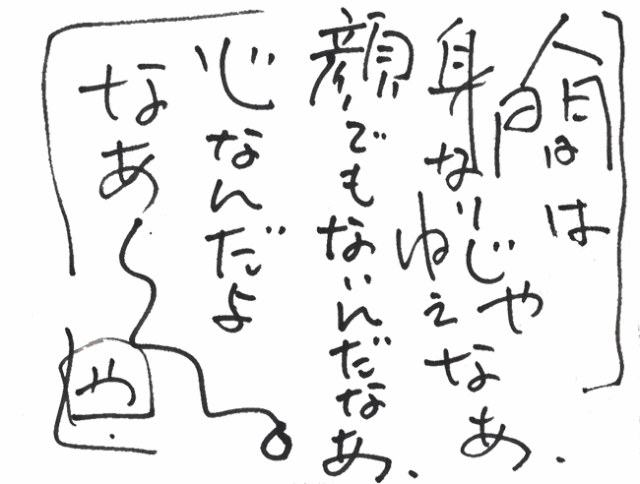 人間は
身なりじゃ
ねえなあ.
顔でもないんだなあ.
心なんだよ
なあ〜
や